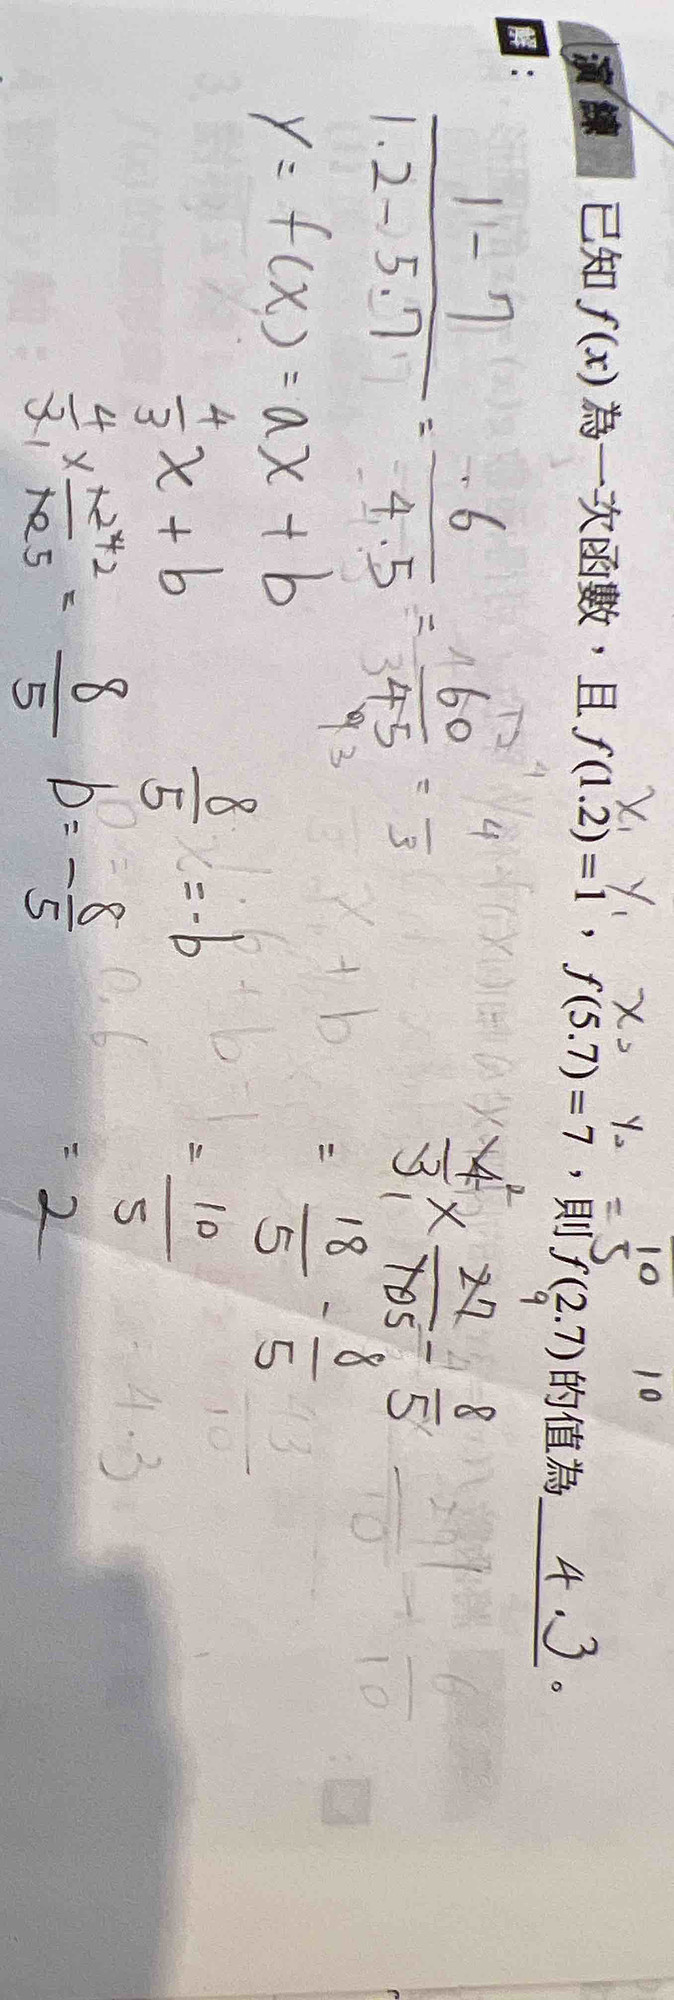 演練 已知 f(x) 為一次函數，且 f(1.2)=1，f(5.7)=7，則 f(2.7) 的值為 4.3。
x₁ y₁ x₂ y₂
解：
1-7 / 1.2-5.7 = -6 / -4.5 = 60/45 = 4/3
y = f(x) = ax + b
4/3 x + b
4/3 × 12/10 = 8/5
8/5 = -b
b = -8/5
4/3 × 27/10 - 8/5
= 18/5 - 8/5
= 10/5
= 2